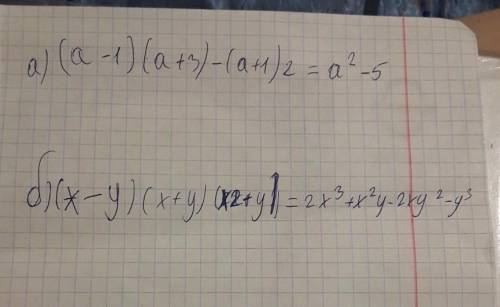 а) (a-1)(a+3)-(a+1)2=a²-5
б) (x-y)(x+y)(x2+y)=2x³+x²y-2xy²-y³